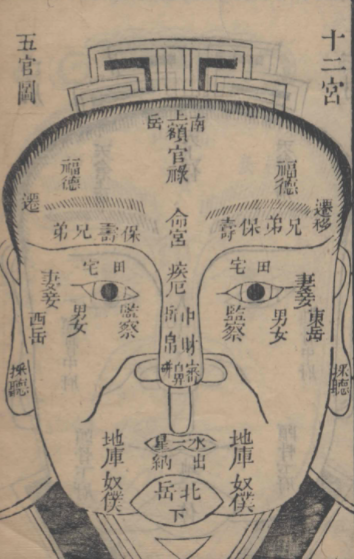 十二宮
五官圖
南岳
上額
官祿
福德
福德
遷移
遷
兄弟保壽
命宮
保壽兄弟
疾厄
田宅
田宅
妻妾
男女
監察
東岳
監察
男女
妻妾
西岳
中岳
財帛
採聽
採聽
水星
出納
地庫
奴僕
地庫
奴僕
北岳
下